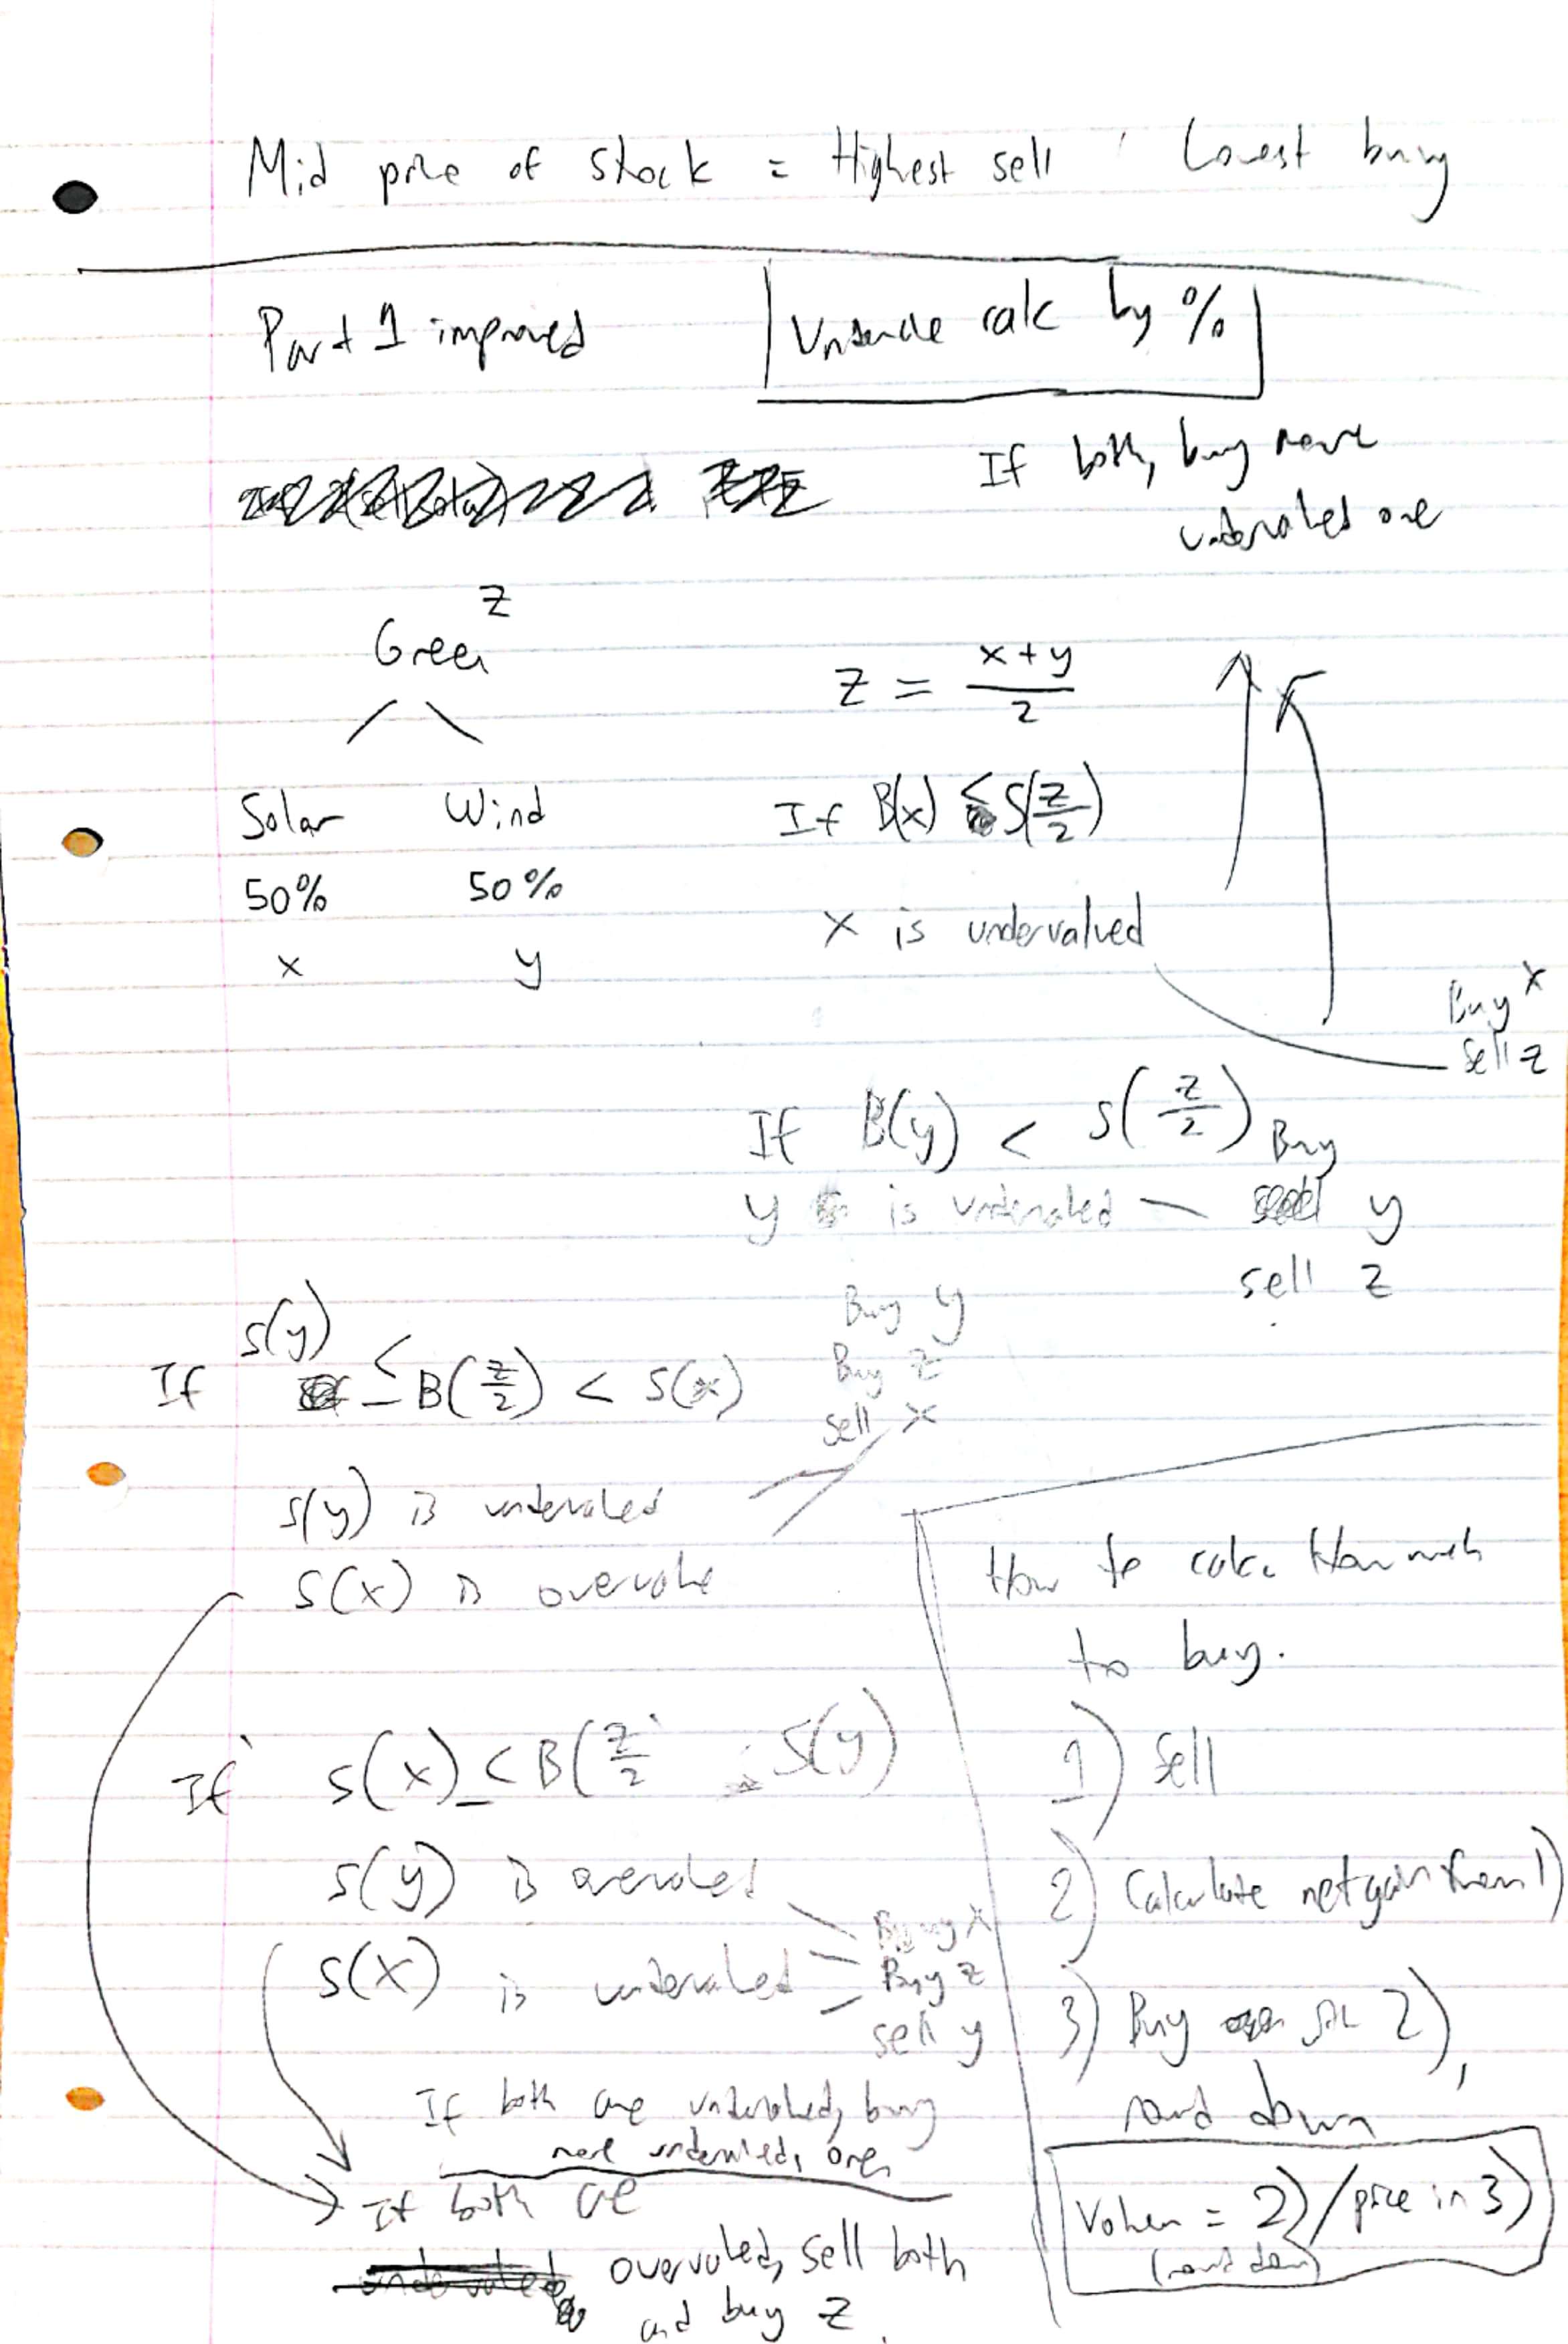 Mid price of stock = Highest sell Lowest buy
Part 1 improved
calc by %
If both, buy more
undervalued one
Z
Green
Z = x+y / 2
Solar Wind
50% 50%
x y
If B(x) ≤ S(z/2)
x is undervalued
Buy x
Sell z
If B(y) < S(z/2)
Buy
y is undervalued — y
sell z
If S(y) ≤ B(z/2) < S(x)
Buy y
Buy z
sell x
S(y) is undervalued
S(x) is overvalue
If S(x) ≤ B(z/2 S(y)
S(y) is overvalued
S(x) is undervalued
Buy x
Buy z
sell y
If both are undervalued, buy
more undervalued, one
If both are
overvalued, sell both
and buy z.
How to calc. How much
to buy.
1) Sell
2) Calculate net gain from 1)
3) Buy 2),
round down
= 2) / price in 3)
(round down)